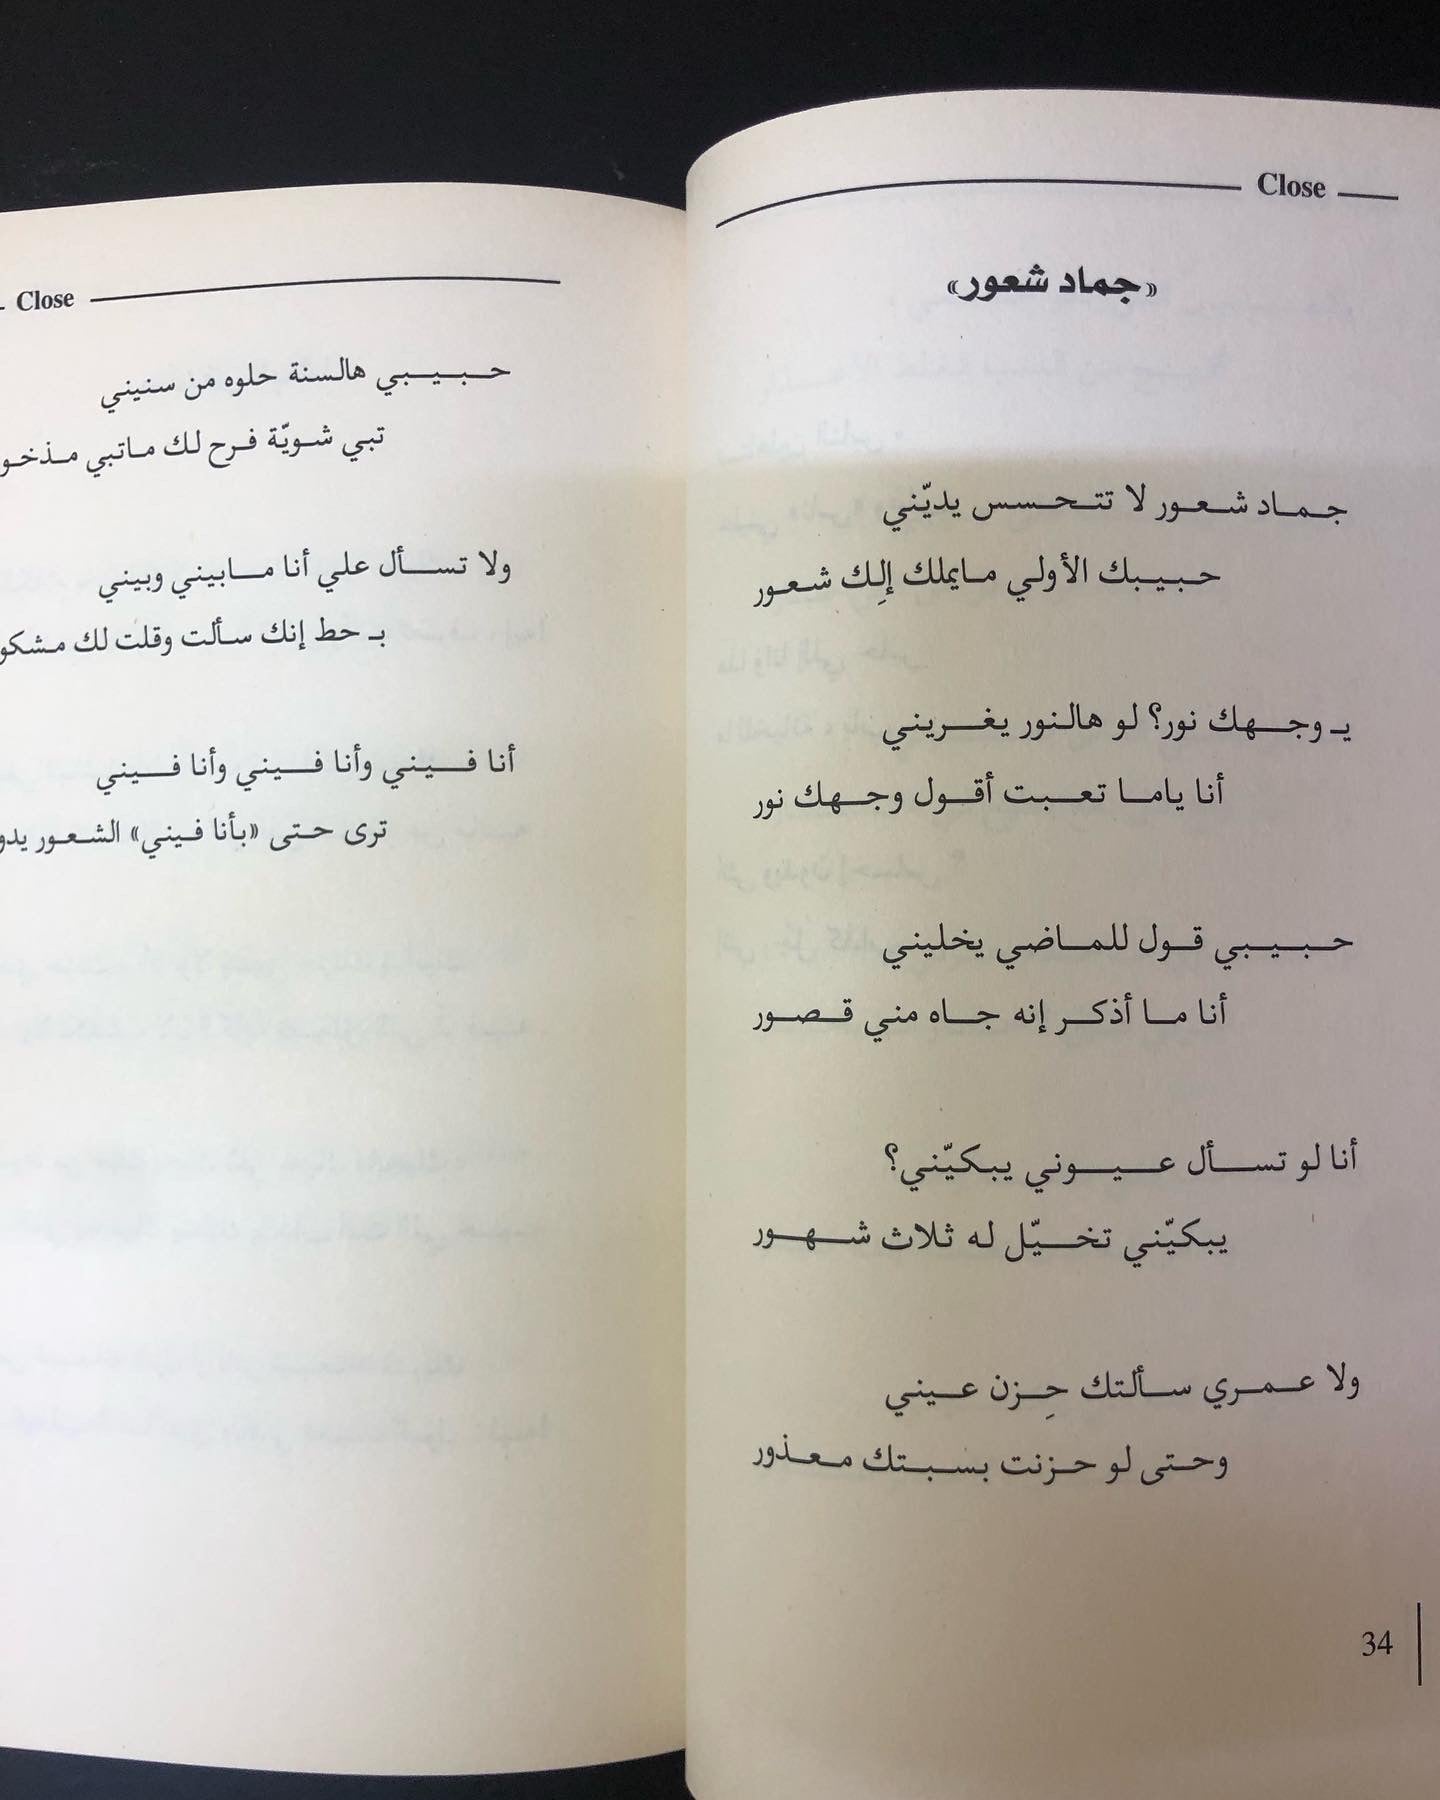 Close
«جماد شعور»
جماد شعور لا تتحسس يديّني
حبيبك الأولي مايملك إلِك شعور
يـ وجهك نور؟ لو هالنور يغريني
أنا ياما تعبت أقول وجهك نور
حبيبي قول للماضي يخليني
أنا ما أذكر إنه جاه مني قصور
أنا لو تسأل عيوني يبكيّني؟
يبكيّني تخيّل له ثلاث شهور
ولا عمري سألتك حِزن عيني
وحتى لو حزنت بسبتك معذور
34
Close
حبيبي هالسنة حلوه من سنيني
تبي شويّة فرح لك ماتبي
ولا تسأل علي أنا مابيني وبيني
بـ حط إنك سألت وقلت لك
أنا فيني وأنا فيني وأنا فيني
ترى حتى «بأنا فيني» الشعور